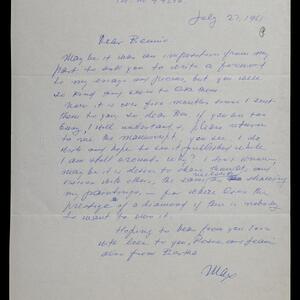 July 27, 1961
Dear Bennie
May be it was an imposition from my
part to ask you to write a foreword
to my essays and poems, but you were
so kind and asked to see them.
Now it is over five months since I sent
them to you, so dear Ben, if you are too
busy, I still understand, please return
to me the manuscript, if you can. I do
wish and hope to see it published while
I am still around. Why? I don't know,
may be it is desire to share thought, and
visions with others, the same as sharing
my paintings, — for where lies the
prestige of a diamond if there is nobody
to want to own it.
Hoping to hear from you soon
with love to you, and
also from Bertha
Max